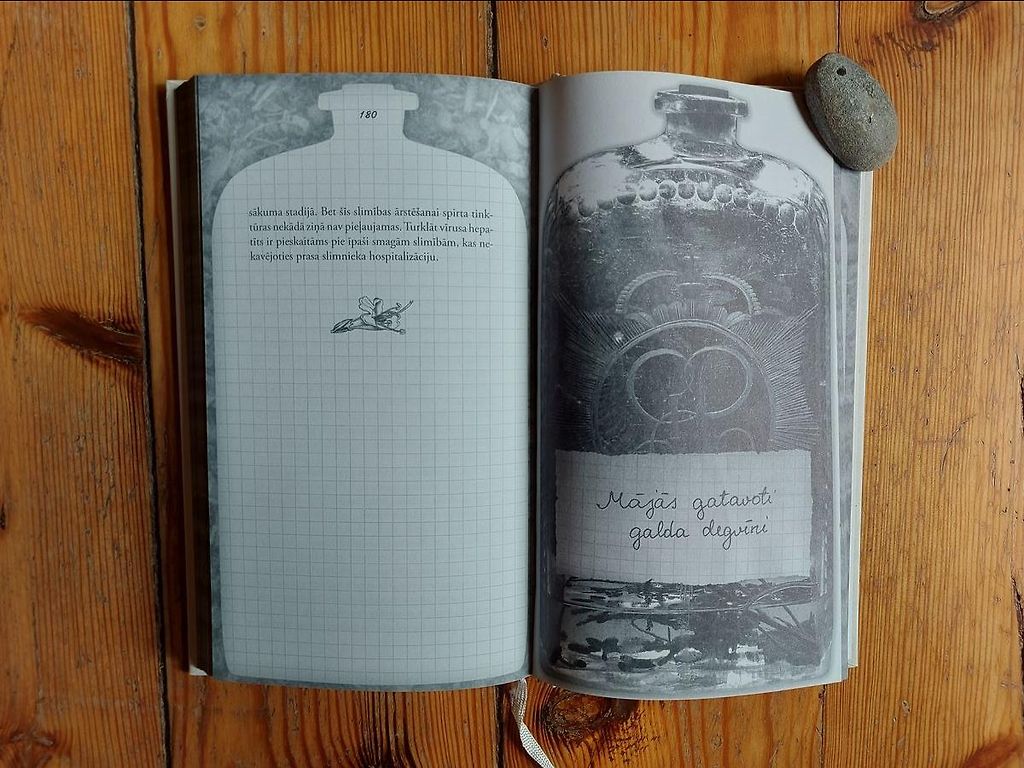 180
sākuma stadijā. Bet šīs slimības ārstēšanai spirta tink-
tūras nekādā ziņā nav pieļaujamas. Turklāt vīrusa hepa-
tīts ir pieskaitāms pie īpaši smagām slimībām, kas ne-
kavējoties prasa slimnieka hospitalizāciju.
Mājās gatavoti
galda degvīni